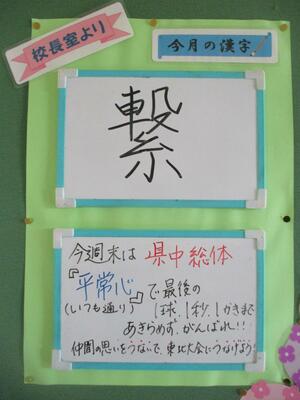 校長室より
今月の漢字
繋
今週末は 県中総体
『平常心』で最後の
(いつも通り) 1球、1秒、1かきまで
あきらめず、がんばれ!!
仲間の思いをつないで、東北大会につなげよう!